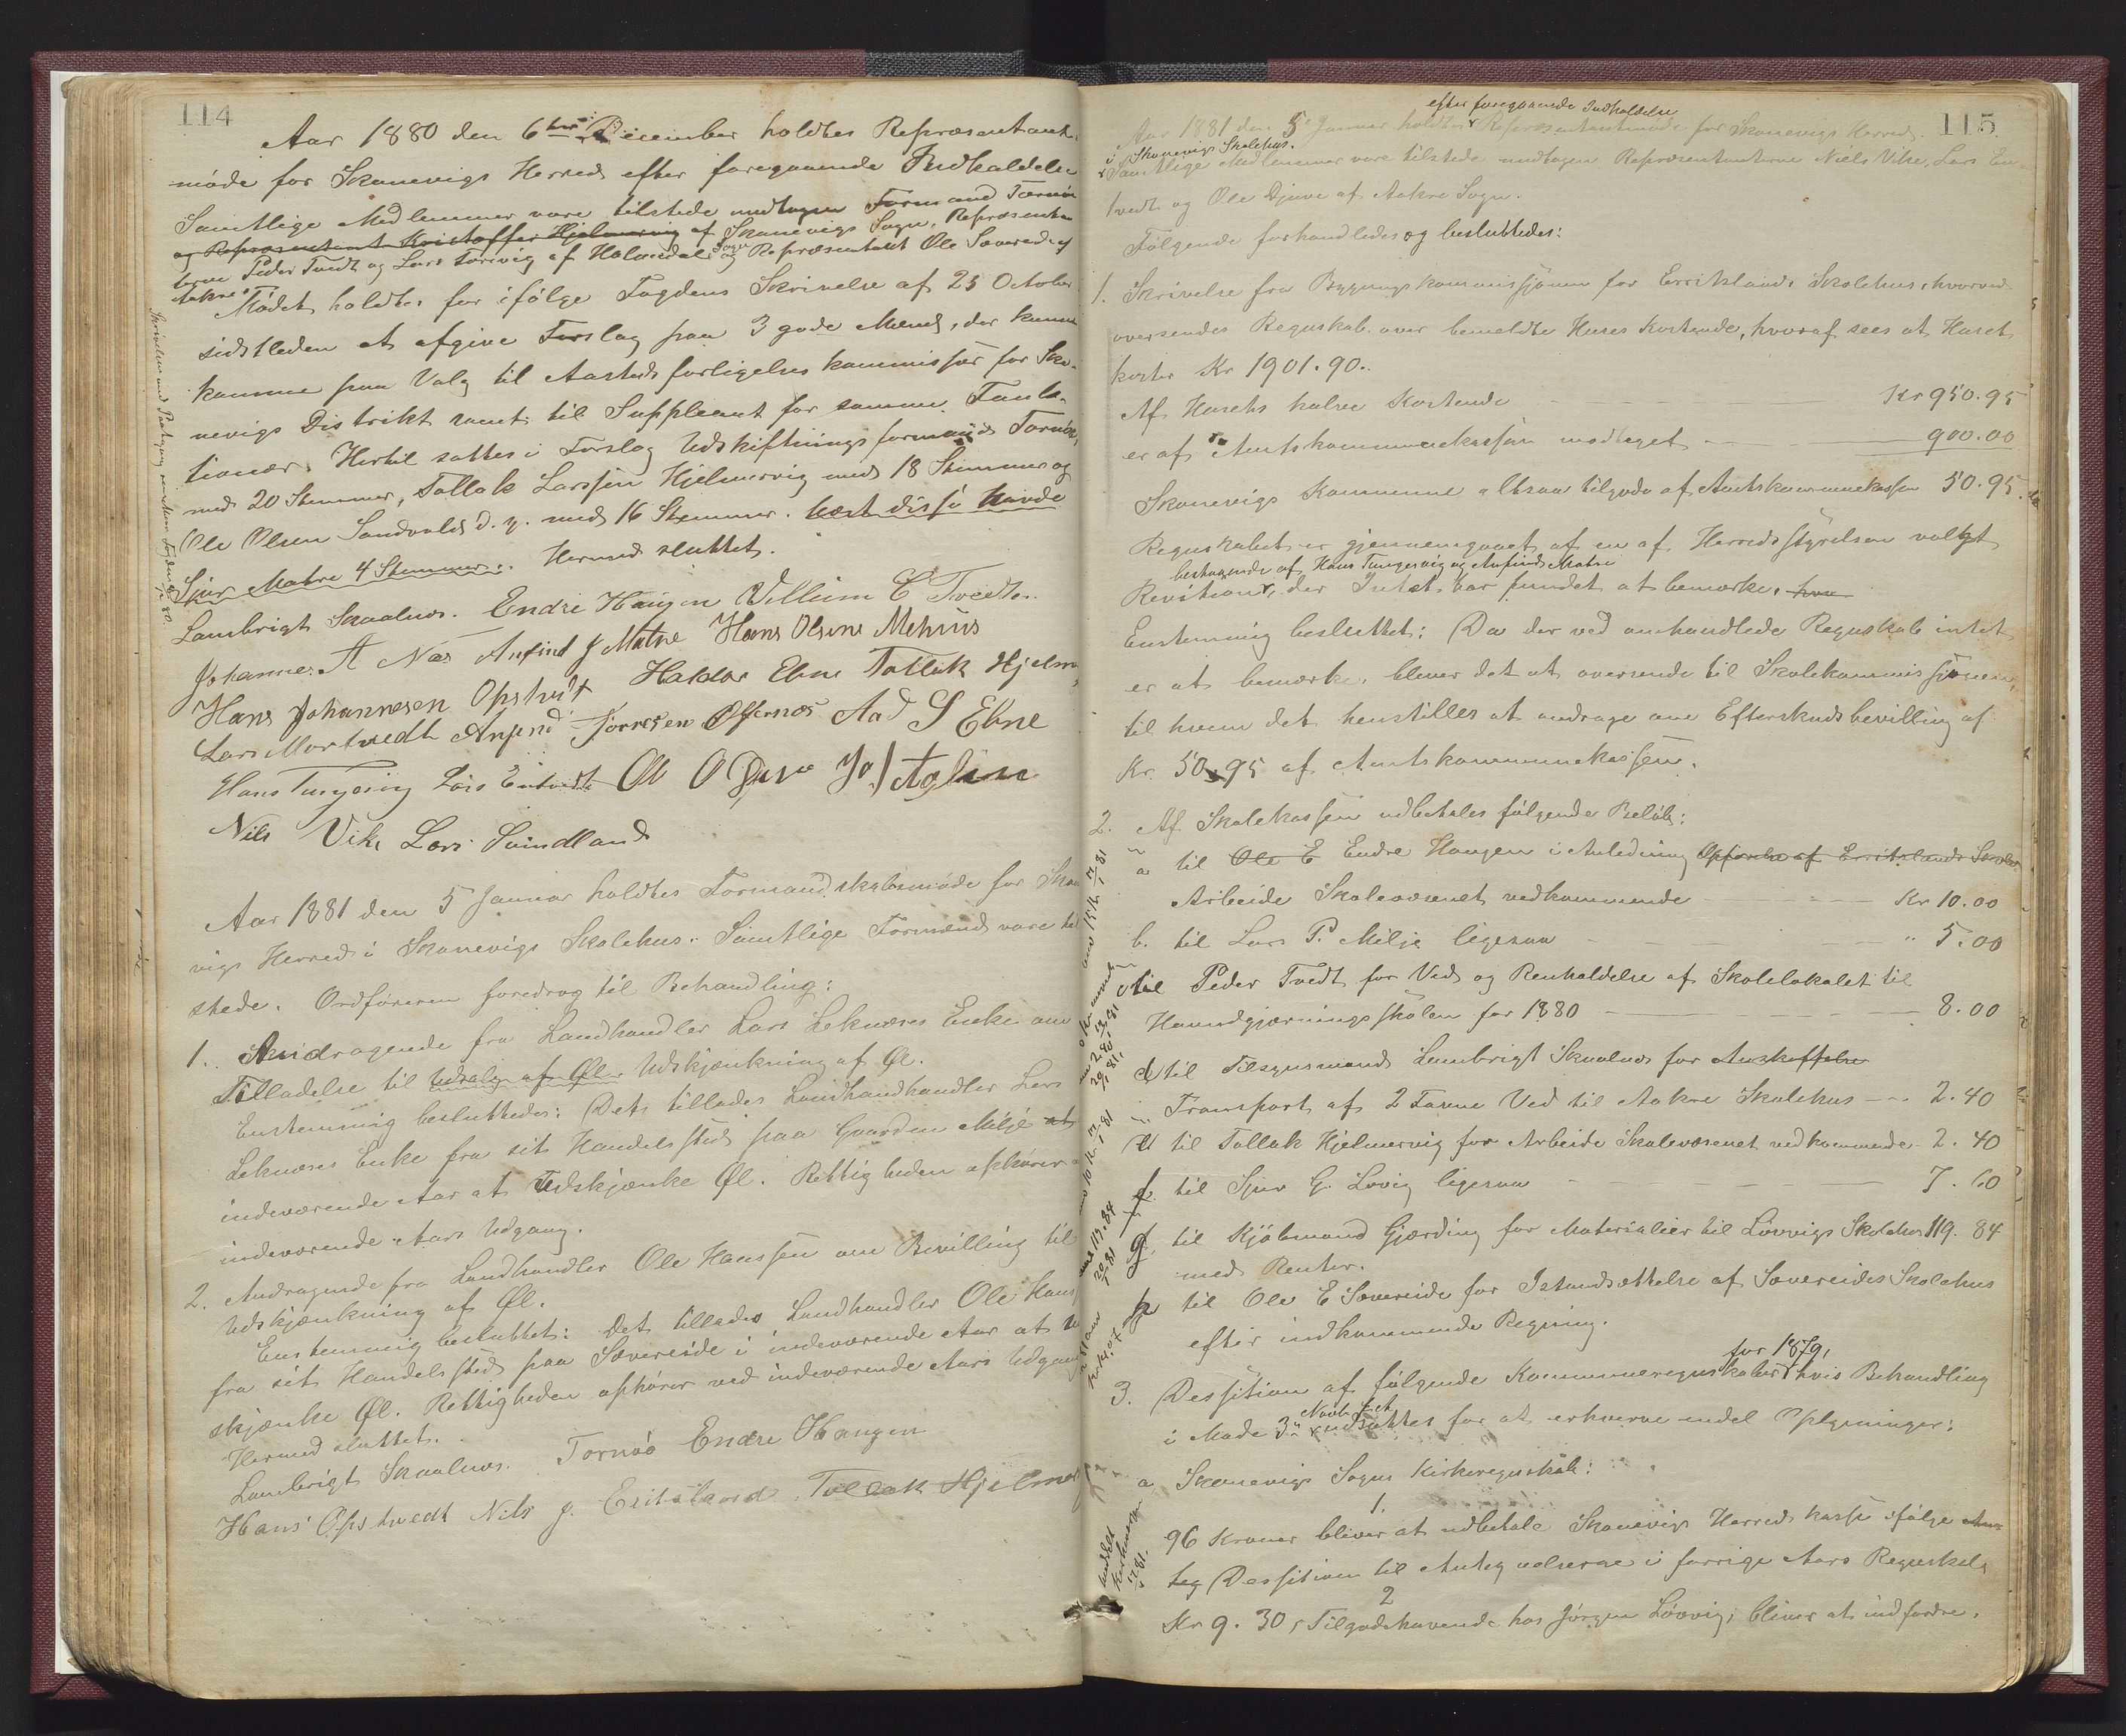 114
Aar 1880 den 6te December holdtes Repræsentant-
møde for Skonevigs Herred efter foregaaende Indkaldelse
Samtlige Medlemmer vare tilstede undtagen Formand Tornøe
og Repræsentant Kristoffer Hjelmervig af Skonevigs Sogn, Repræsentan
terne Peder Tvedt og Lars Torevig af Holmedals Sogn og Repræsentant Ole Sævereide af
Aakre.
Mødet holdtes for ifølge Fogdens Skrivelse af 25 October
sidstleden at afgive Forslag paa 3 gode Mænd, der kunne
komme paa Valg til Aastedsforligelseskommissær for Sko-
nevigs Distrikt samt til Suppleant for samme Funk-
tionær. Hertil sattes i Forslag Udskiftningsformand Tornøe,
med 20 Stemmer, Tollak Larssen Hjelmervig med 18 Stemmer og
Ole Olsen Sandvold d. y. med 16 Stemmer. Næst disse havde
Sjur Matre 4 Stemmer. Hermed sluttet.
Lambrigt Skaalnes. Endre Haugen Villum E Tvedte.
Johannes A Næs Anfind J Matre Hans Olsene Mehuus
Hans Johannesen Opstvedt Haldor Ebne Tollak Hjelm
Lars Mortvedt Anfind Torresen Østernæs Aad S Ebne
Hans Tungesvig Lars Entvedt Ole O Djuve
Nils Vike Lars Svindland
Aar 1881 den 5 Januar holdtes Formandskabsmøde for Skon
vigs Herred i Skonevigs Skolehus. Samtlige Formænd vare til
stede. Ordføreren foredrog til Behandling:
1. Andragende fra Landhandler Lars Leknæses Enke om
Tilladelse til Udsalg af Øl. Udskjænkning af Øl.
Enstemmig besluttedes: Det tillades Landhandhandler Lars
Leknæses Enke fra sit Handelssted paa Gaarden Milje at
indeværende Aar at Udskjænke Øl. Rettigheden ophører
indeværende Aars Udgang.
2. Andragende fra Landhandler Ole Hanssen om Bevilling til
Udskjænkning af Øl.
Enstemmig besluttet: Det tillades Landhandler Ole Hans
fra sit Handelssted paa Sævereide i indeværende Aar at u
skjænke Øl. Rettigheden ophører ved indeværende Aars Udgang
Hermed sluttet.
Lambrigt Skaalnes. Tornøe Endre Haugen
Hans Opstvedt Nils J. Eritsland Tollak Hjelmer
115
efter foregaaende Indkaldelse
Aar 1881 den 5te Januar holdtes Repræsentantmøde for Skonevigs Herred
i Skonevigs Skolehus.
Samtlige Medlemmer vare tilstede undtagen Repræsentanterne Niels Vike, Lars En
tvedt og Ole Djuve af Aakre Sogn.
Følgende forhandledes og besluttedes:
1. Skrivelse fra Bygningskommissjonen for Erritslands Skolehus, hvorved
oversendes Regnskab over bemeldte Huses Kostende, hvoraf sees at Huset
koster Kr 1901.90.
Af Husets halve Kostende Kr 950.95
er af Amtskommunekassen modtaget 900.00
Skonevigs Kommune altsaa tilgode af Amtskommunekassen 50.95.
Regnskabet er gjennemgaaet af en af Herredsstyrelsen valgt
bestaaende af Hans Tungesvig og Anfind Matre
Revision, der Intet har fundet at bemærke.
Enstemmig besluttet: Da der ved omhandlede Regnskab intet
er at bemærke, bliver det at oversende til Skolekommissjonen,
til hvem det henstilles at andrage om Efterskudsbevilling af
Kr. 50.95 af Amtskommunekassen.
2. Af Skolekassen udbetales følgende Beløb:
a til Ole E Endre Haugen i Anledning Opførelse af Erritslands Skolehus
Arbeide Skolevæsenet vedkommende Kr 10.00
b. til Lars P. Milje ligesaa " 5.00
c til Peder Tvedt for Ved og Renholdelse af Skolelokalet til
Haandgjerningsskolen for 1880 8.00
d til Tilsynsmand Lambrigt Skaalnes for Anskaffelse
Transport af 2 Favne Ved til Aakre Skolehus 2.40
e til Tollak Hjelmervig for Arbeide Skolevæsenet vedkommende 2.40
f. til Sjur G. Lovig ligesaa 7.60
g. til Kjøbmand Gjerding for Materialier til Løvvigs Skolehus 119.84
med Renter.
h til Ole E Sævereide for Istandsættelse af Sævereides Skolehus
efter indkommende Regning.
3. Desission af følgende Kommuneregnskaber for 1879, hvis Behandling
i Møde 3die Novb. f. A. udsattes for at erhverve endel Oplysninger:
a Skonevigs Sogns Kirkeregnskab:
1.
96 Kroner bliver at udbetale Skonevigs Herredskasse ifølge
Desission til Antegnelserne i forrige Aars Regnskab.
2
Kr 9.30, Tilgodehavende hos Jørgen Løvvig, bliver at indfordre.